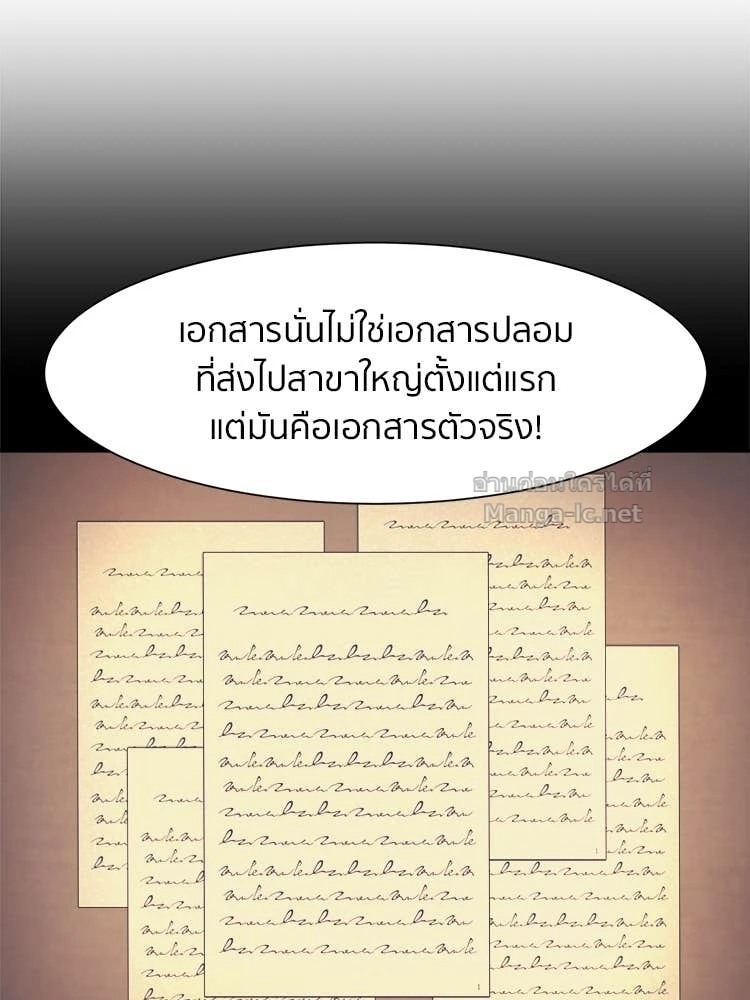 เอกสารนั่นไม่ใช่เอกสารปลอม
ที่ส่งไปสาขาใหญ่ตั้งแต่แรก
แต่มันคือเอกสารตัวจริง!
อ่านก่อนใครได้ที่
Manga-lc.net
1
1